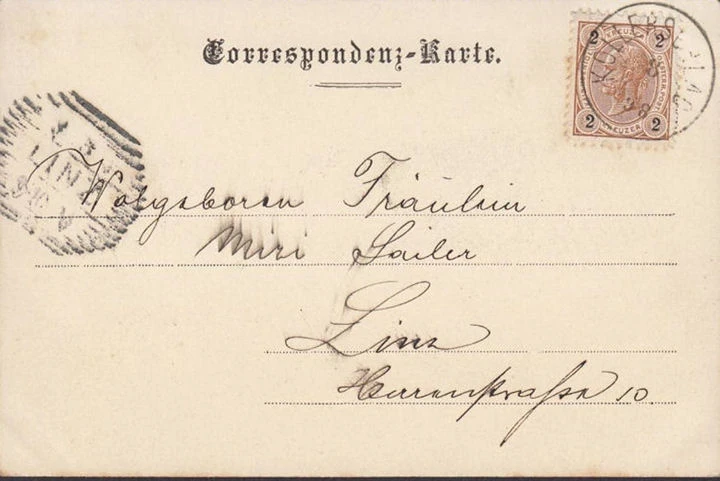 Correspondenz-Karte.
2 KREUZER 2
2 2
LINZ
Wolgeboren Fräulein
Miri Sailer
Linz
Herrenstraße 10.